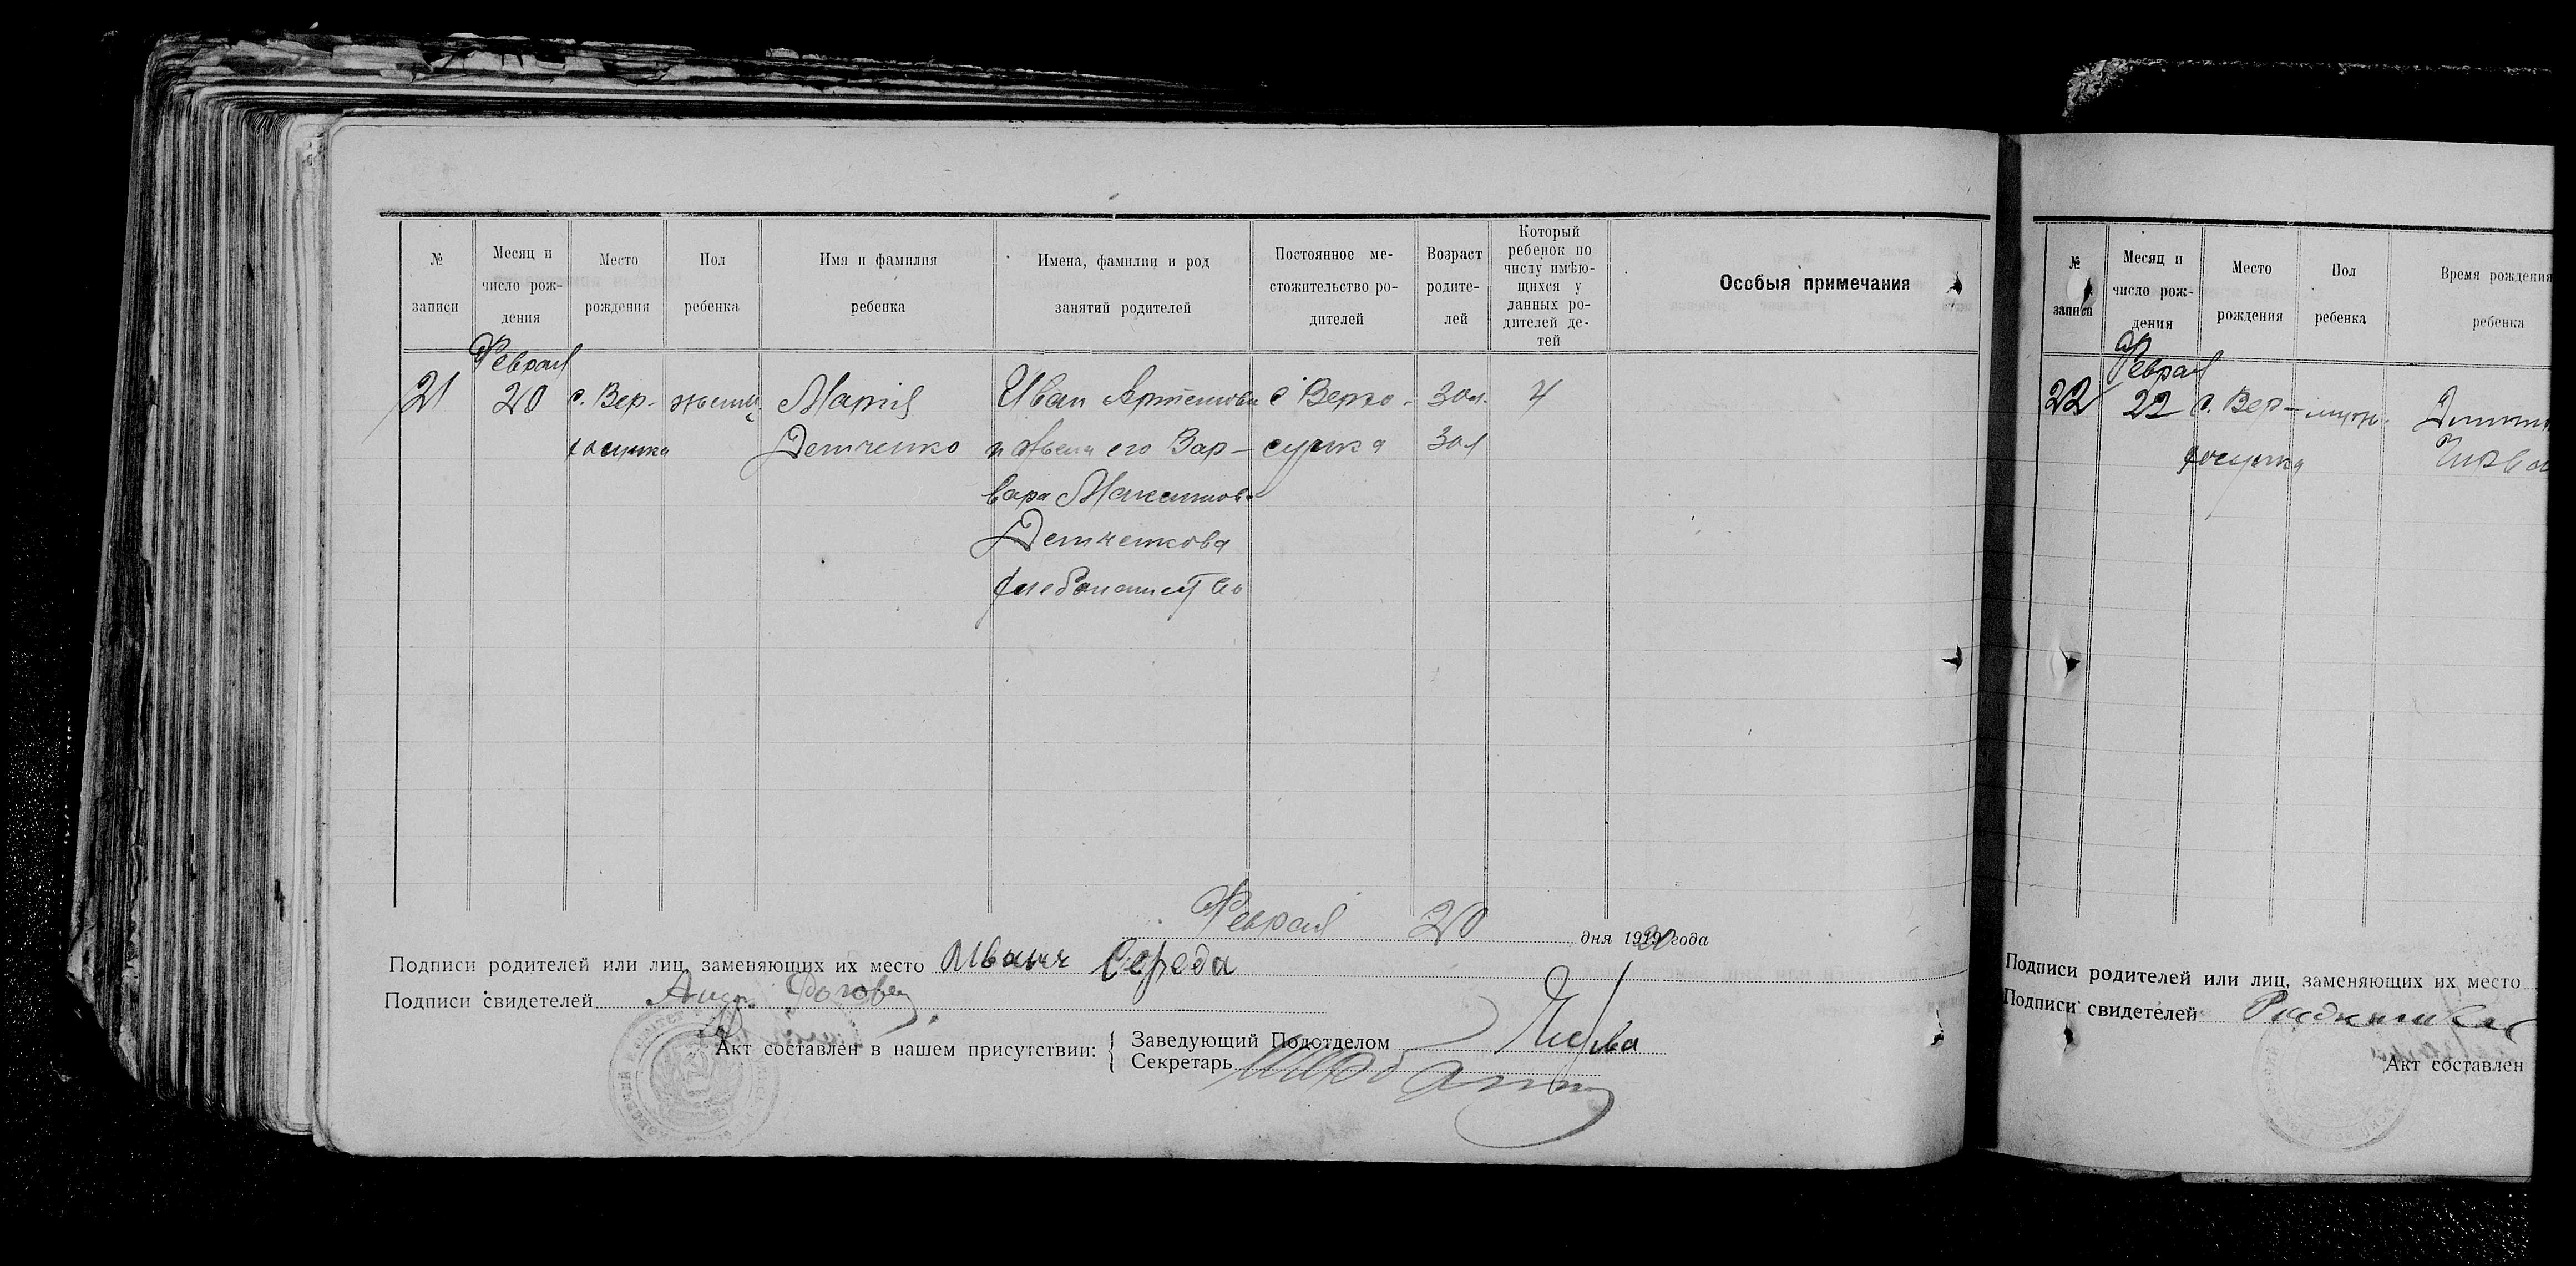 № записи
Месяц и число рож-дения
Место рождения
Пол ребенка
Имя и фамилия ребенка
Имена, фамилии и род занятий родителей
Постоянное ме-стожительство ро-дителей
Возраст родите-лей
Который ребенок по числу имѣю-щихся у данных ро-дителей де-тей
Особыя примечания
Феврал
21 20 с. Вер- женщ. Марія Иван Артемов с Верхо- 30 л. 4
хосунка Демченко и жена его Вар- сунка 30 л
вара Максимов
Демченкова
хлебопашество
Феврал 20 дня 1920 года
Подписи родителей или лиц, заменяющих их место Иванъ Середа
Подписи свидетелей
Акт составлен в нашем присутствии:
Заведующий Подотделом
Секретарь
№ записи
Месяц и число рож-дения
Место рождения
Пол ребенка
Время рождения ребенка
Феврал
22 22 с. Вер- мужч.
хосунка
Подписи родителей или лиц, заменяющих их место
Подписи свидетелей
Акт составлен